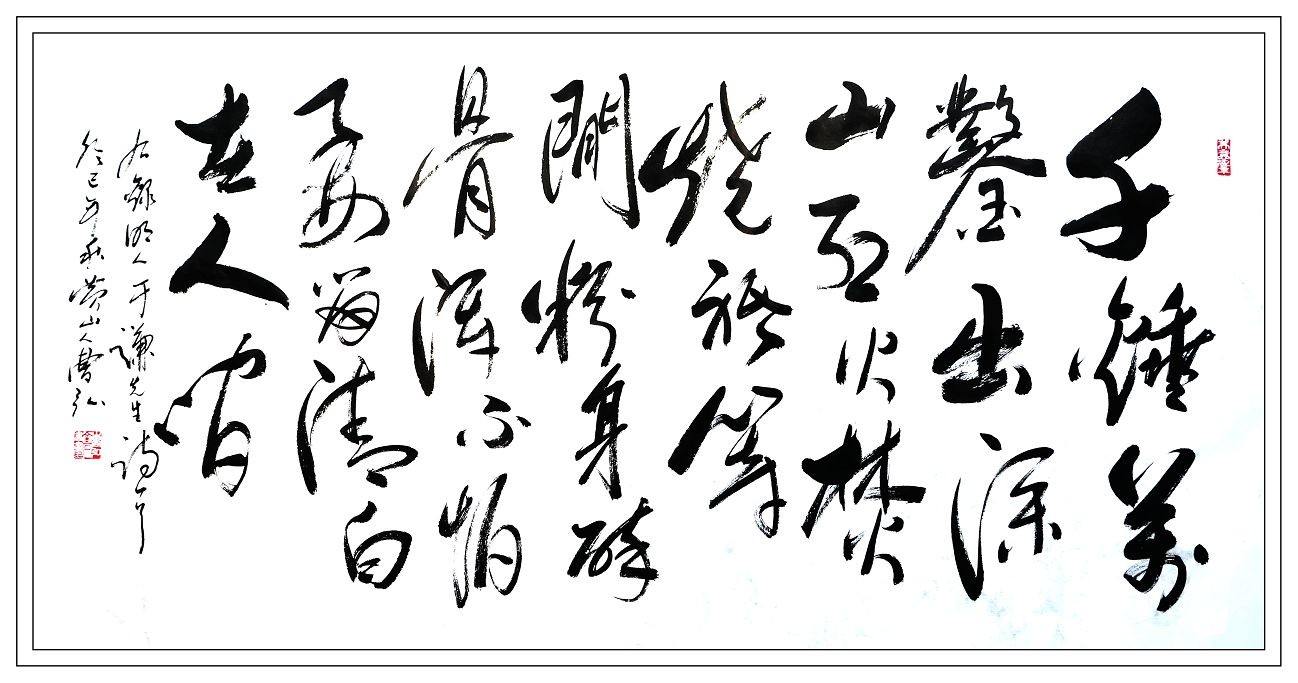 千錘萬
鑿出深
山烈火焚
燒祗等
閒粉身碎
骨渾不怕
要留清白
在人間
右錄明人于謙先生詩一首
癸巳年秋山人曹弘